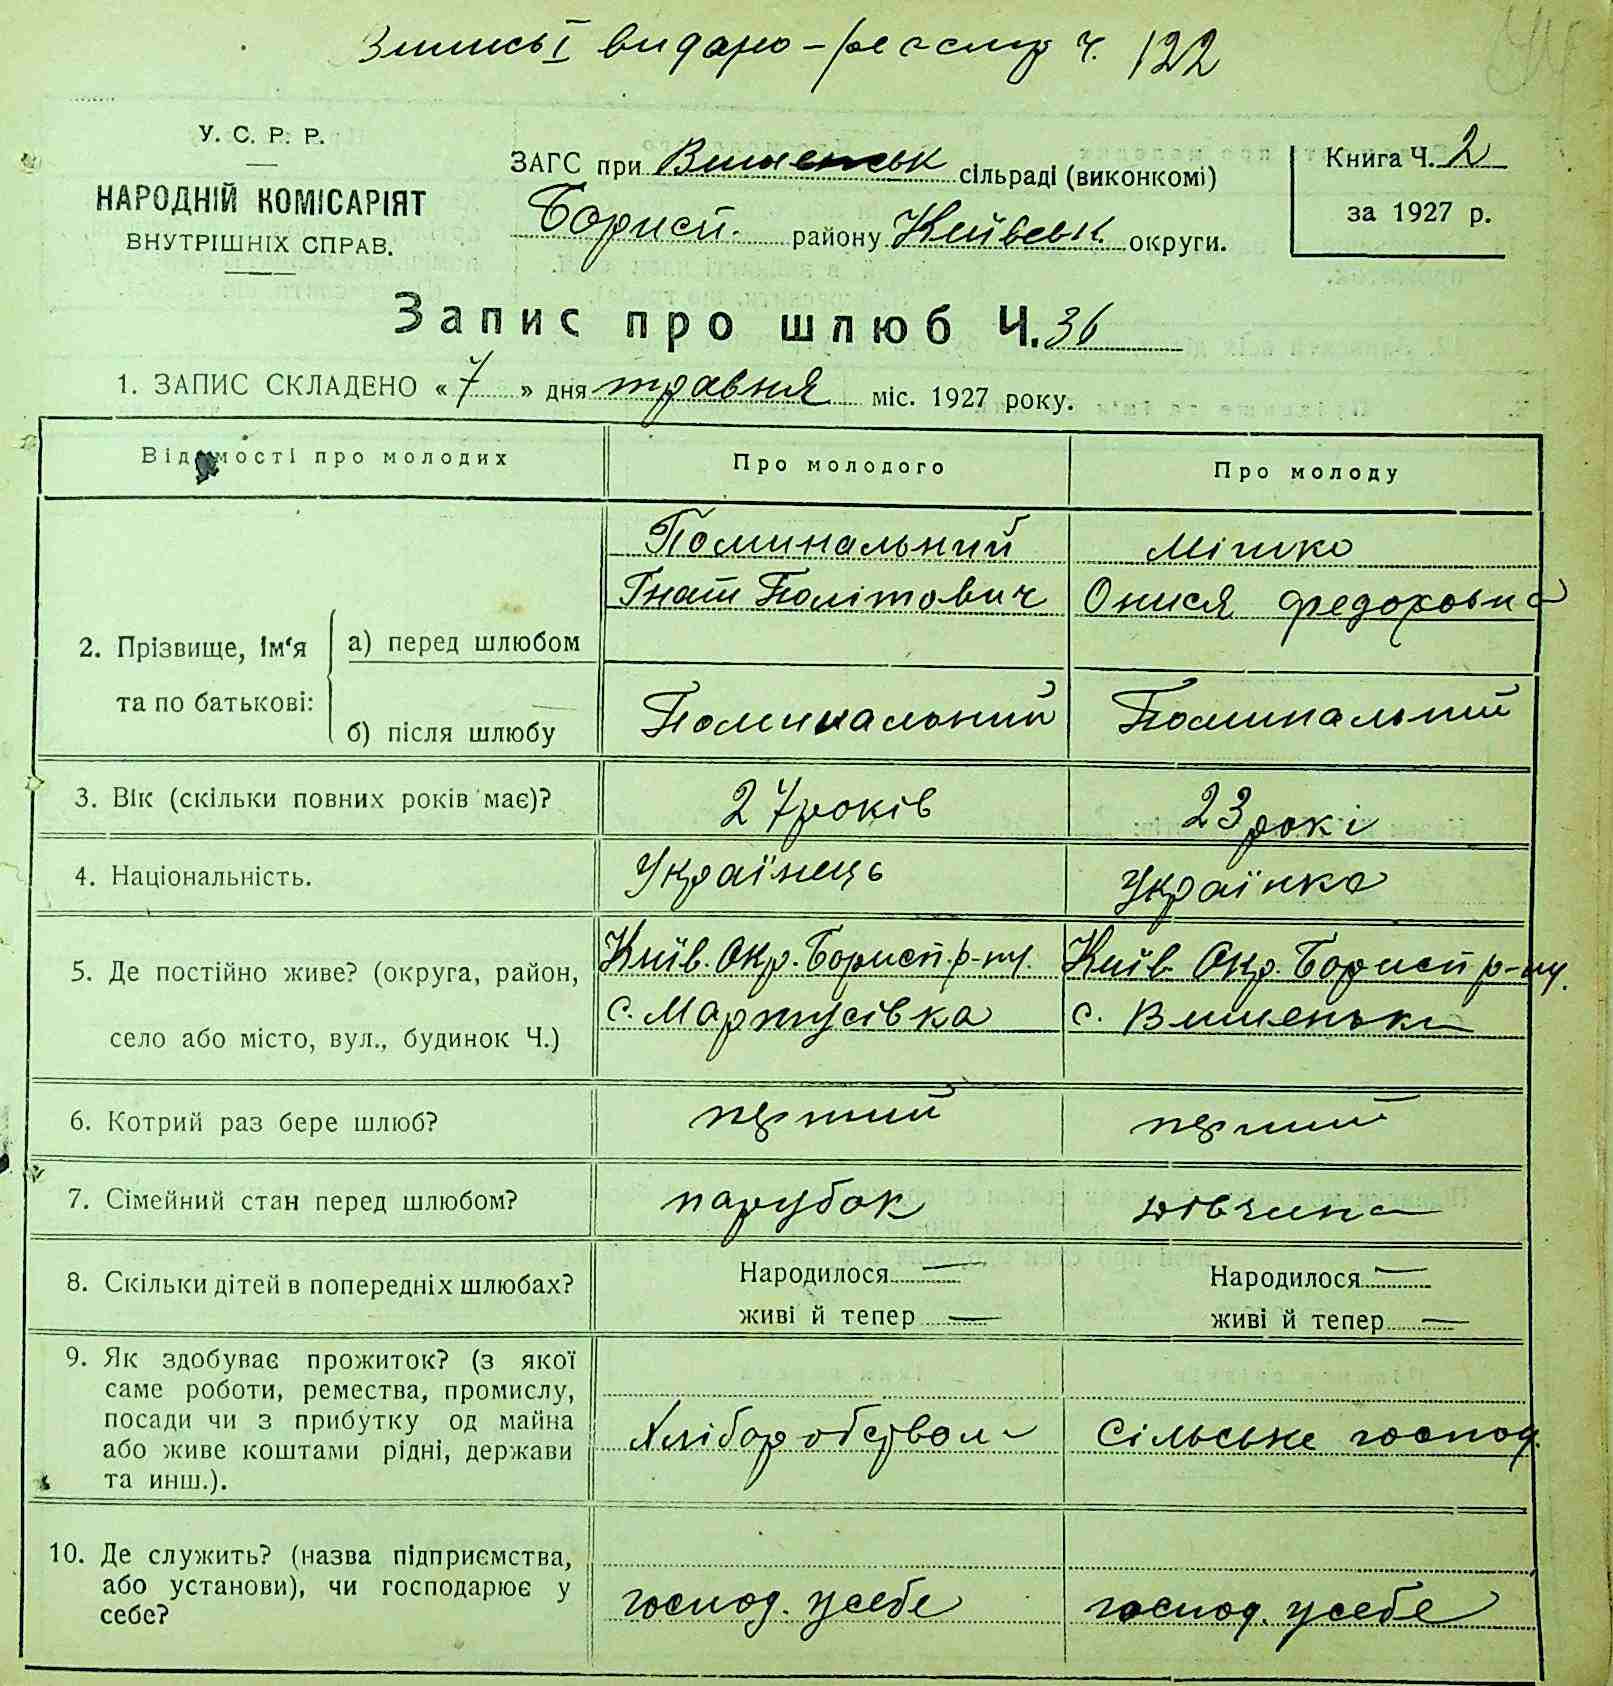 видано - реєстр ч. 122
У. С. Р. Р.
НАРОДНІЙ КОМІСАРІЯТ
ВНУТРІШНІХ СПРАВ.
ЗАГС при Вишеньськ сільраді (виконкомі)
Борисп. району Київськ. округи.
Книга Ч. 2
за 1927 р.
Запис про шлюб Ч. 36
1. ЗАПИС СКЛАДЕНО « 7 » дня травня міс. 1927 року.
Відомості про молодих
Про молодого
Про молоду
2. Прізвище, ім‘я
та по батькові:
а) перед шлюбом
Поминальний
Гнат Політович
Мішко
Онися Федоховна
б) після шлюбу
Поминальний
Поминальний
3. Вік (скільки повних років має)?
27 років
23 рокі
4. Національність.
Українець
Українка
5. Де постійно живе? (округа, район,
село або місто, вул., будинок Ч.)
Київ. Окр. Борисп. р-ну.
с. Мартусівка
Київ. Окр. Борисп р-ну.
с. Вишеньки
6. Котрий раз бере шлюб?
перший
перший
7. Сімейний стан перед шлюбом?
парубок
дівчина
8. Скільки дітей в попередніх шлюбах?
Народилося —
живі й тепер —
Народилося —
живі й тепер —
9. Як здобуває прожиток? (з якої
саме роботи, ремества, промислу,
посади чи з прибутку од майна
або живе коштами рідні, держави
та инш.).
Сільське господ.
10. Де служить? (назва підприємства,
або установи), чи господарює у
себе?
господ. усебе
господ. усебе